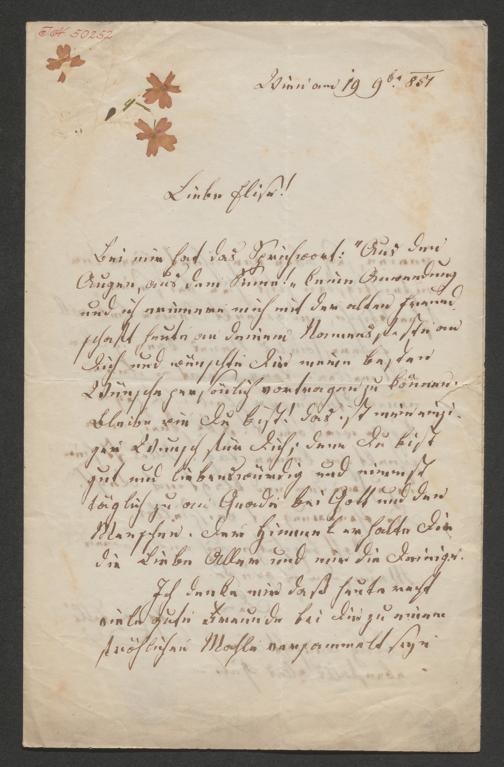 I.N. 50252
Wien am 19 9br 851
Liebe Elise!
Bei mir hat das Sprichwort: "Aus den
Augen, aus dem Sinne!" keine Anwendung
und ich erinnere mich mit der alten Freund-
schaft heute an deinem Namensfeste an
Dich und wünschte Dir meine besten
Wünsche persönlich vortragen zu können.
Bleibe wie Du bist! das ist mein einzi-
ger Wunsch für Dich; denn Du bist
gut und liebenswürdig und nimmst
täglich zu an Gnade bei Gott und den
Menschen. Der Himmel erhalte Dir
die Liebe Aller und mir die Deinige.
Ich denke mir daß heute recht
viele gute Freunde bei Dir zu einem
fröhlichen Mahle versammelt sein